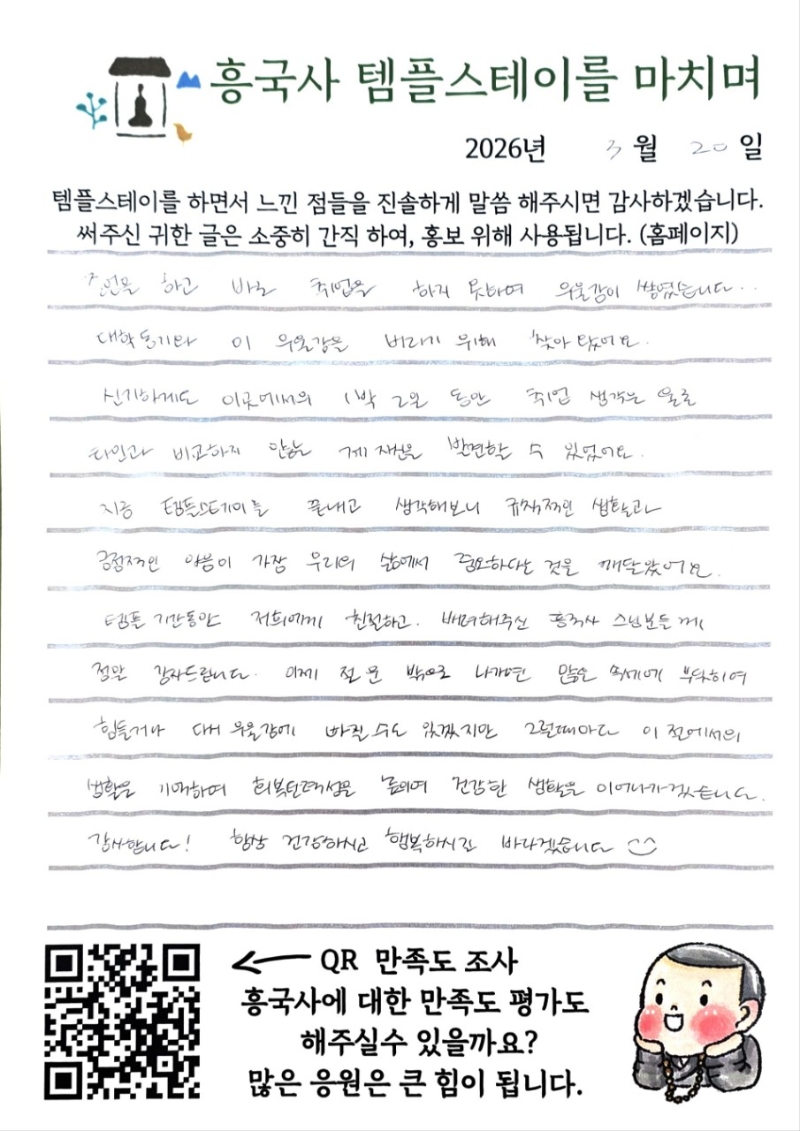 흥국사 템플스테이를 마치며
2026년 3월 20일
템플스테이를 하면서 느낀 점들을 진솔하게 말씀 해주시면 감사하겠습니다.
써주신 귀한 글은 소중히 간직 하여, 홍보 위해 사용됩니다. (홈페이지)
졸업을 하고 바로 취업을 하지 못하여 우울감이 쌓였습니다..
대학동기와 이 우울감을 버리기 위해 찾아 왔어요.
신기하게도 이곳에서의 1박 2일 동안 취업 생각은 물론
타인과 비교하지 않는 제 자신을 발견할 수 있었어요.
지금 템플스테이를 끝내고 생각해보니 규칙적인 생활과
긍정적인 마음이 가장 우리의 삶에서 중요하다는 것을 깨달았어요.
템플 기간동안 저희에게 친절하고. 배려해주신 흥국사 스님분들께
정말 감사드립니다. 이제 절 문 밖으로 나가면 많은 속세에 부딪히여
힘들거나 다시 우울감에 빠질 수도 있겠지만 그럴때마다 이 절에서의
생활을 기억하며 회복탄력성을 높이며 건강한 생활을 이어나가겠습니다.
감사합니다! 항상 건강하시고 행복하시길 바라겠습니다
QR 만족도 조사
흥국사에 대한 만족도 평가도
해주실수 있을까요?
많은 응원은 큰 힘이 됩니다.